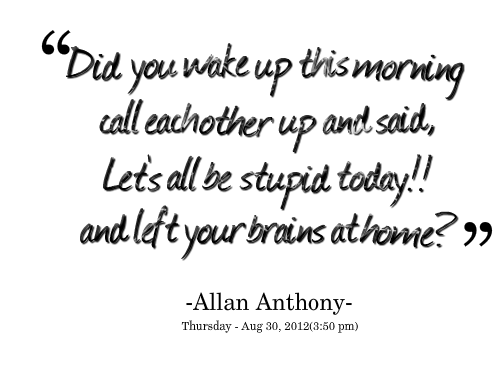 “Did you wake up this morning
call eachother up and said,
Let's all be stupid today!!
and left your brains at home?”
-Allan Anthony-
Thursday - Aug 30, 2012(3:50 pm)